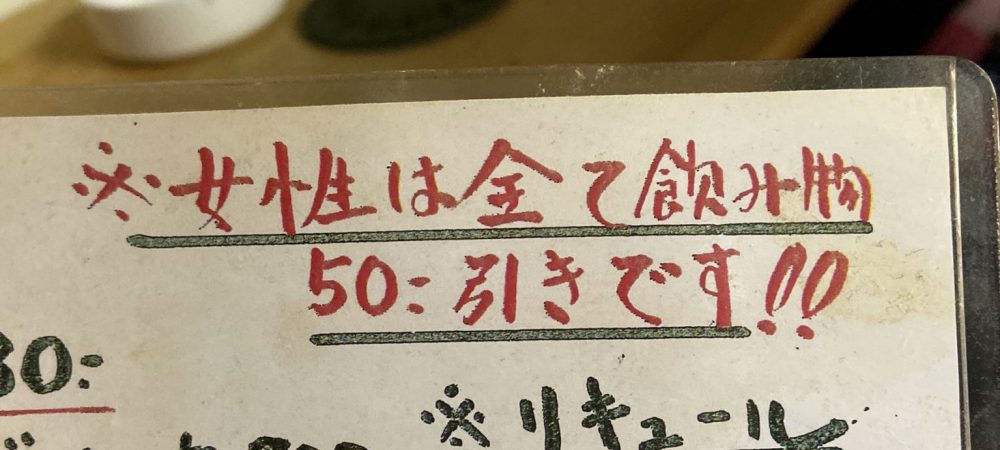 ※女性は全て飲み物
50:引きです!!
30:
※リキュール